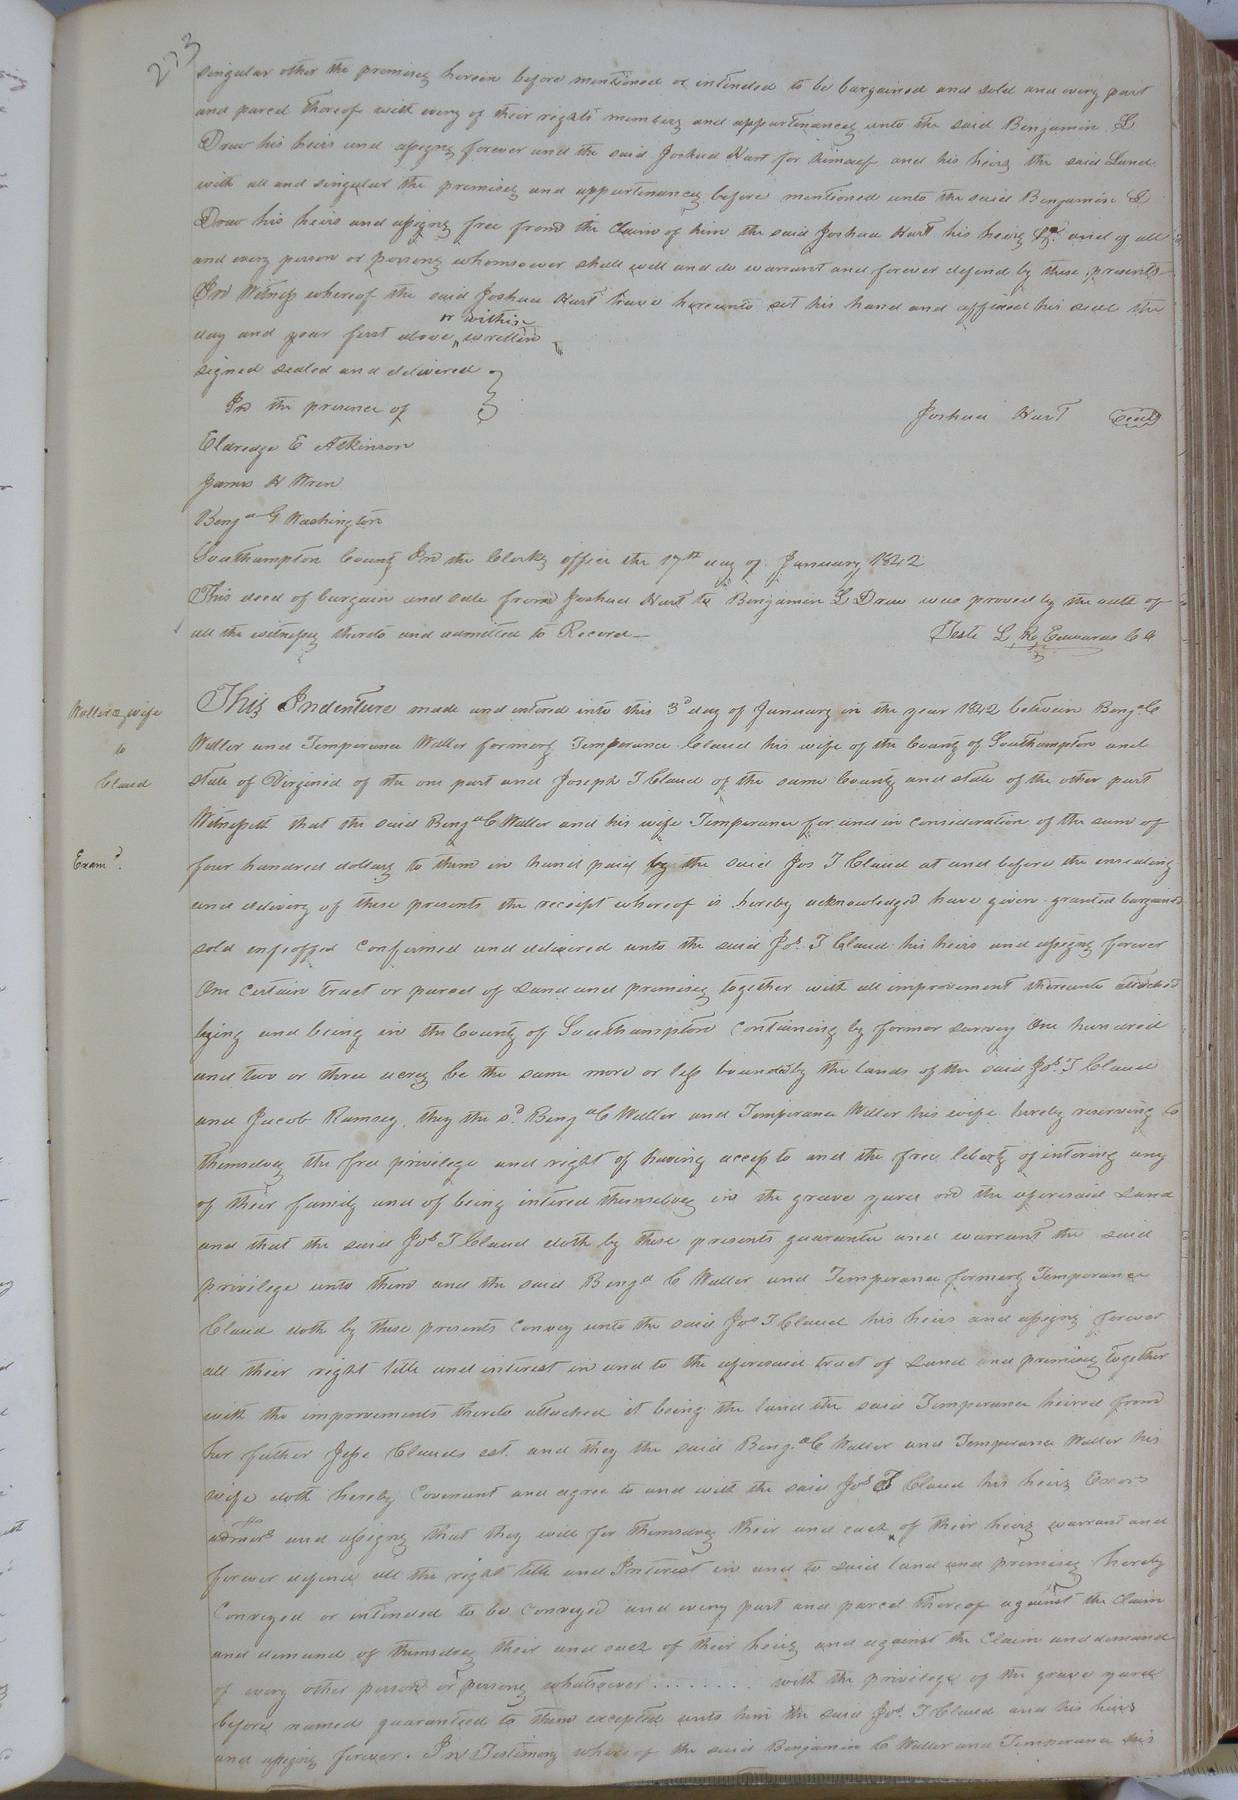 273
singular other the premises herein before mentioned or intended to be bargained and sold and every part
and parcel thereof with every of their rights members and appurtenances unto the said Benjamin L
Drew his heirs and assigns forever and the said Joshua Hart for himself and his heirs the said Land
with all and singular the premises and appurtenances before mentioned unto the said Benjamin L
Drew his heirs and assigns free from the Claim of him the said Joshua Hart his heirs &c. and of all
and every person or persons whomsoever shall will and do warrant and forever defend by these presents
In Witness whereof the said Joshua Hart have hereunto set his hand and affixed his seal the
day and year first above or within written
signed sealed and delivered
In the presence of
Joshua Hart Seal
Eldredge E Atkinson
James H Wren
Benja G Washington
Southampton County In the Clerks office the 17th day of January 1842
This deed of bargain and sale from Joshua Hart to Benjamin L Drew was proved by the oath of
all the witnesses thereto and admitted to Record
Teste L R Edwards C C
Waller & wife
to
Claud
Examd.
This Indenture made and entered into this 3d day of January in the year 1842 between Benja C
Waller and Temperance Waller formerly Temperance Claud his wife of the County of Southampton and
state of Virginia of the one part and Joseph T Claud of the same County and state of the other part
Witnesseth that the said Benja C Waller and his wife Temperance for and in consideration of the sum of
four hundred dollars to them in hand paid by the said Jos T Claud at and before the ensealing
and delivery of these presents the receipt whereof is hereby acknowledged have given granted bargained
sold enfeoffed confirmed and delivered unto the said Jos. T Claud his heirs and assigns forever
One certain tract or parcel of Land and premises together with all improvement thereunto attached
lying and being in the County of Southampton containing by former survey One hundred
and two or three acres be the same more or less bounded by the lands of the said Jos. T Claud
and Jacob Ramsey, they the sd. Benja C Waller and Temperance Waller his wife hereby reserving to
themselves the free privilege and right of having access to and the free liberty of intering any
of their family and of being intered themselves in the grave yard on the aforesaid Land
and that the said Jos T Claud doth by these presents guarantee and warrant the said
privilege unto them and the said Benja C Waller and Temperance formerly Temperance
Claud doth by these presents convey unto the said Jos T Claud his heirs and assigns forever
all their right title and interest in and to the aforesaid tract of Land and premises together
with the improvements thereto attached it being the land the said Temperance heired from
her father Jesse Clauds est. and they the said Benja C Waller and Temperance Waller his
wife doth hereby Covenant and agree to and with the said Jos T Claud his heirs Exors
admors and assigns that they will for themselves their and each of their heirs warrant and
forever defend all the right title and Interest in and to said land and premises hereby
Conveyed or intended to be conveyed and every part and parcel thereof against the claim
and demand of themselves their and each of their heirs and against the claim and demand
of every other person or persons whatsoever ........ with the privilege of the grave yard
before named guaranteed to them excepted unto him the said Jos. T Claud and his heirs
and assigns forever. In Testimony whereof the said Benjamin C Waller and Temperance his